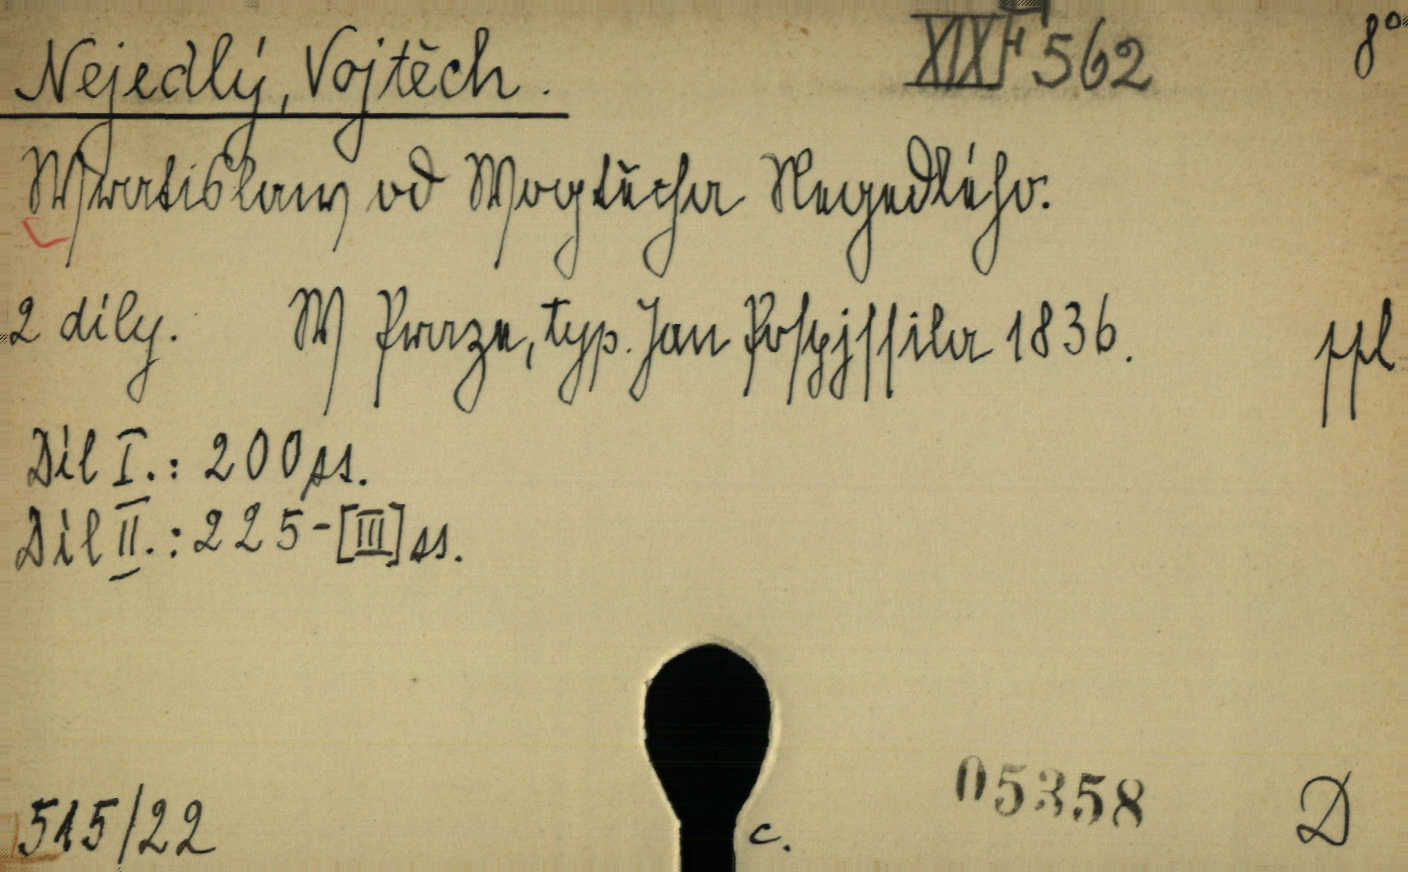 Nejedlý, Vojtěch.
XIX F 562
8°
Wratislaw od Wogtěcha Negedlého.
2 díly. W Praze, typ. Jan Pospjssila 1836.
ppl
Díl I.: 200 ss.
Díl II.: 225-[III] ss.
515/22
c.
05358
D